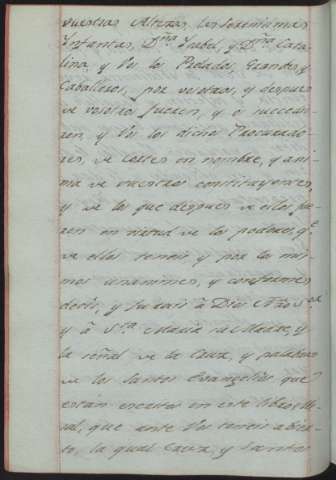 vuestras Altezas, las Serenissimas
Infantas, Dña Isabel, y Dña Cata-
lina, y Vos los Prelados, Grandes, y
Caballeros, por vosotros, y despues
de vosotros fueren, y os succedie-
ren, y Vos los dichos Procurado-
res, de Cortes en nombre, y ani-
ma de vuestros constituyentes,
y de los que despues de ellos fue-
ren en virtud de los poderes, qe.
de ellos teneis y por los mis-
mos unanimes, y conformes
decis, y Jurais â Dios Ntrô Sor.
y â Sta. Maria su Madre, y
la señal de la Cruz, y palabras
de los Santos Evangelios que
están escritos en este libro Mi-
sal, que ante Vos teneis abier-
to, la qual Cruz, y Santos